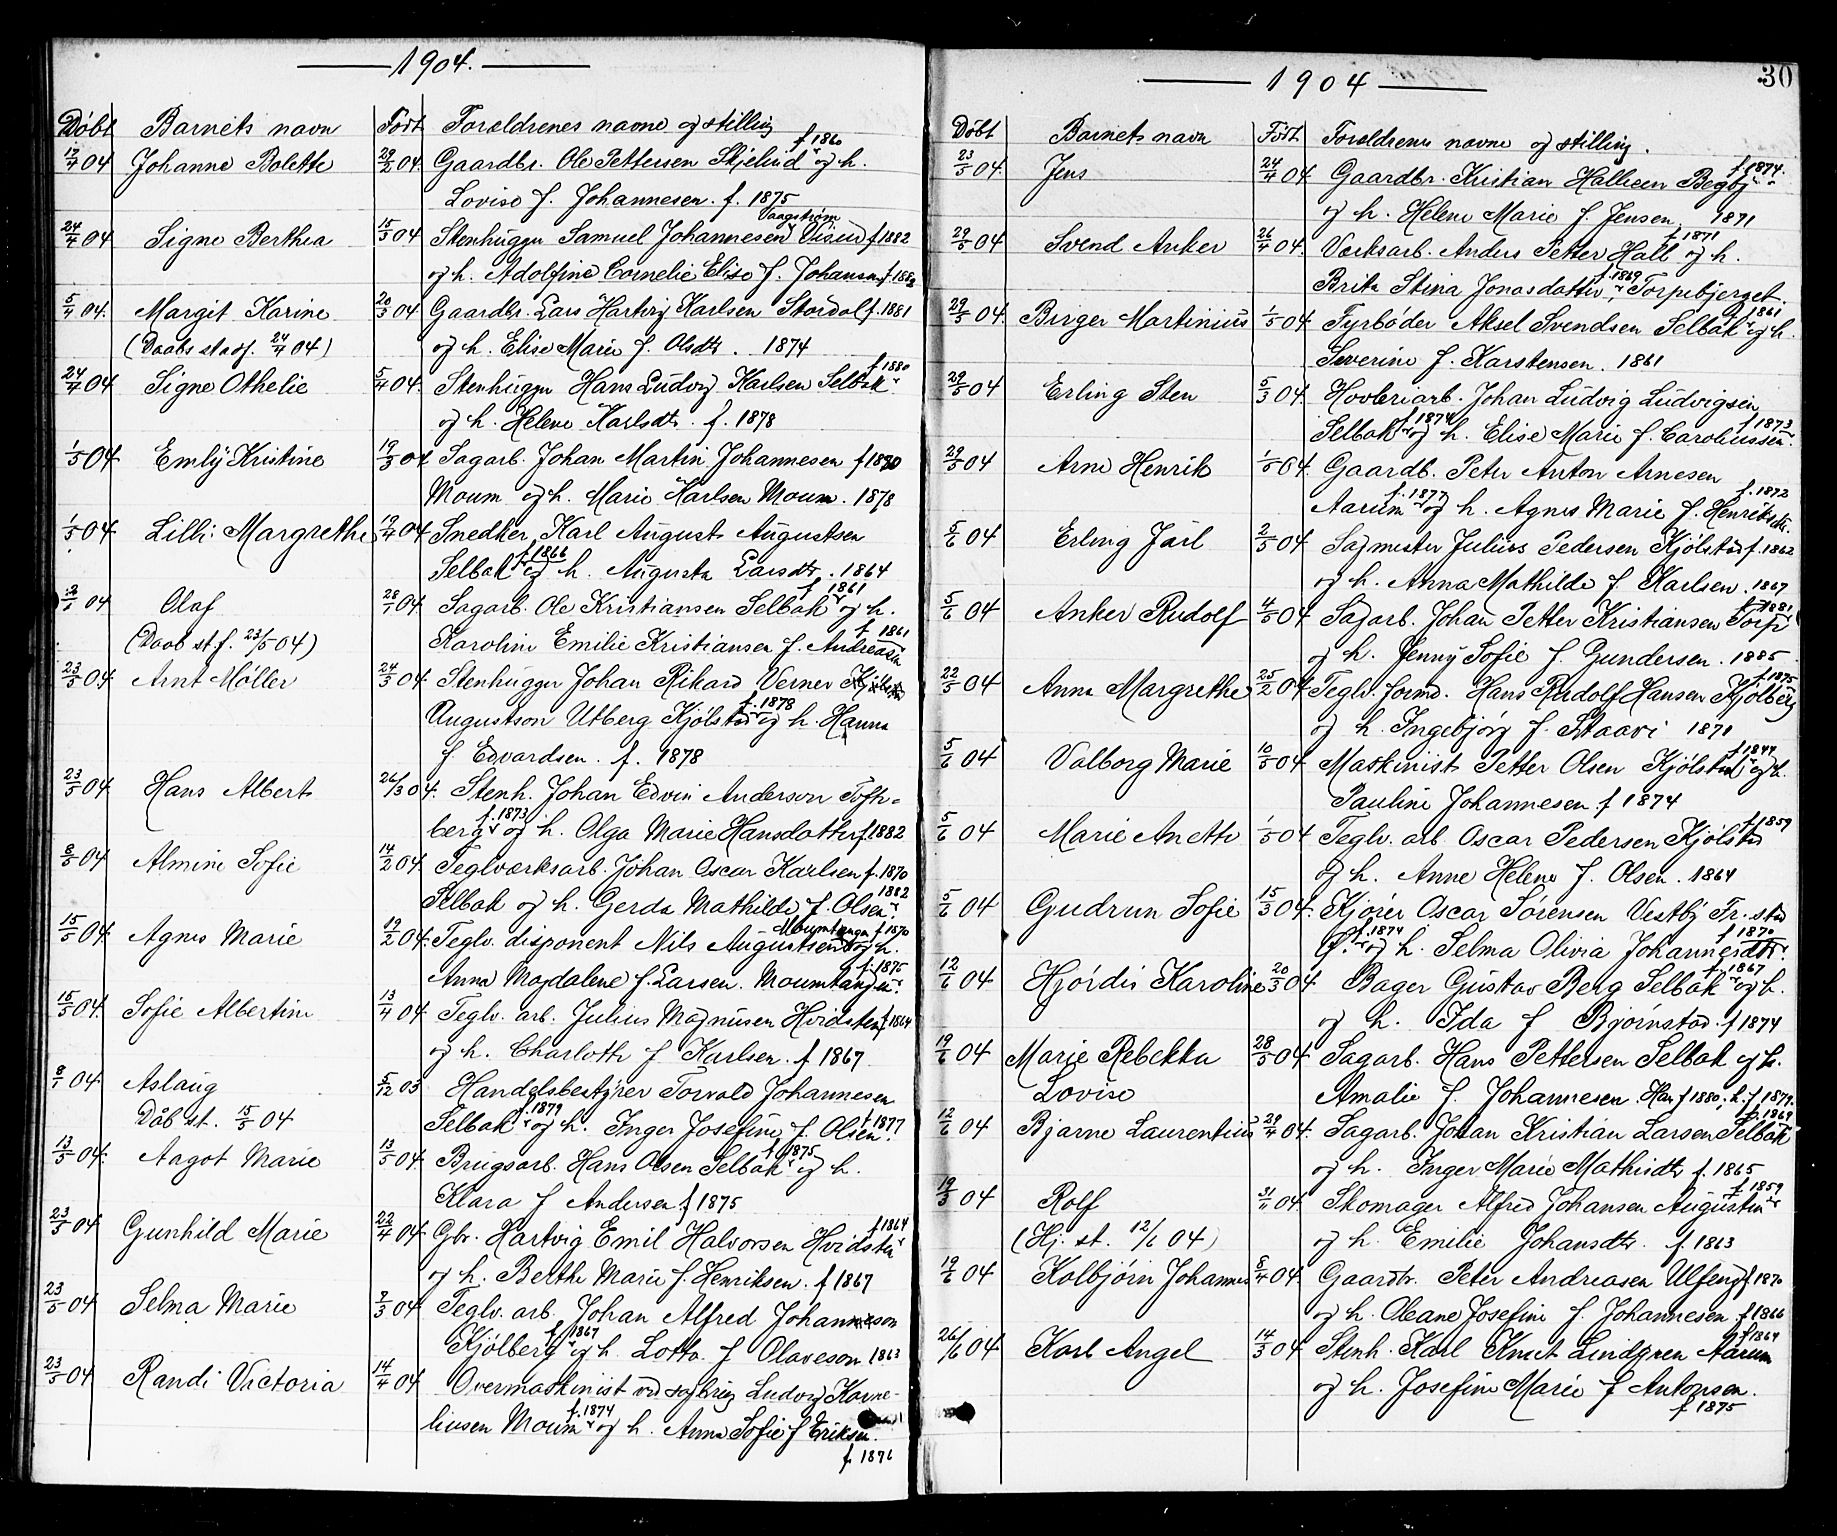 1904.
Døbt Barnets navn Født Forældrenes navne og stilling
17/4 04 Johanne Bolette 29/2 04. Gaardbr. Ole Pettersen Skjelind f 1860 og h.
Lovise f. Johannesen. f. 1875
24/4 04 Signe Berthea 15/3 04 Stenhugger Samuel Johannesen Vaagstrøm Visin f 1882
og h. Adolfine Cornelie Elise f. Johansen f 188
5/4 04. Margit Karine 20/3 04 Gaardbr. Lars Hartvig Karlsen Stordal f. 1881
(Daabs stadf. 24/4 04) og h. Elise Marie f. Olsdtr. 1874
24/4 04 Signe Othelie 5/4 04. Stenhugger Hans Ludvig Karlsen Selbak f 1880
og h. Helene Karlsdtr. f. 1878
1/5 04 Emly Kristine 19/3 04 Sagarb. Johan Martin Johannesen f 1870
Moum og h. Marie Karlsen Moum. 1878
1/5 04 Lilli Margrethe 19/4 04 Snedker Karl August Augustsen
Selbak f 1866 og h. Augusta Larsdtr. 1864
04 Olaf 28/1 04 Sagarb. Ole Kristiansen Selbak f 1861 og h.
(Daab st. f. 23/5 04) Karoline Emilie Kristiansen f. Andreasen f 1861
23/5 04 Arnt Møller 24/3 04 Stenhugger Johan Rikard Verner
Augustson Utberg Kjølstad f. 1878 og h. Hanna
f Edvardsen. f. 1878
23/5 04. Hans Albert 26/3 04. Stenh. Johan Edvin Anderson Toft-
berg f. 1873 og h. Olga Marie Hansdatter f 1882
8/5 04 Almine Sofie 14/2 04. Teglværksarb. Johan Oscar Karlsen f. 1870
Selbak og h. Gerda Mathilde f Olsen. 1882
15/5 04. Agnes Marie 19/2 04. Teglv. disponent Nils Augustsen Moumtangen f 1870 og h.
Anna Magdalene f. Larsen. Moumtangen. f. 1875
15/5 04. Sofie Albertine 13/4 04 Teglv. arb. Julius Magnusen Hvidsten f 1864
og h. Charlotte f Karlsen. f 1867
8/1 04. Aslaug 5/12 03 Handelsbestyrer Torvald Johannesen
Dåb st. 15/5 04 Selbak f. 1879 og h. Inger Josefine f. Olsen. f 1877
13/5 04. Aagot Marie 13/5 04. Brugsarb. Hans Olsen Selbak f 1875 og h.
Klara f Andersen f 1875
23/5 04 Gunhild Marie 22/4 04 Gbr. Hartvig Emil Halvorsen Hvidsten f 1864
og h. Berthe Marie f. Henriksen. f 1867
23/5 04 Selma Marie 04 Teglv. arb. Johan Alfred Johannesson
Kjølberg f 1867 og h. Lotta f Olaveson 1863
23/5 04 Randi Victoria 14/4 04 Overmaskinist ved sagbrug Ludvig Korne-
liusen Moum f. 1874 og h. Anna Sofie f Eriksen.
f. 1876
30
1904
Døbt Barnets navn Født Forældrenes navne og stilling.
23/5 04. Jens 24/4 04 Gaardbr. Kristian Hallieen Begby f 1874.
og h. Helene Marie f Jensen 1871
29/5 04 Svend Anker 26/4 04. Værksarb. Anders Petter Hall f 1871 og h.
Brita Stina Jonasdatter f. 1869, Torpebjerget.
29/5 04. Birger Martinius 1/5 04 Fyrbøder Aksel Svendsen Selbak f 1861 og h.
Severine f. Karstensen. 1861
29/5 04 Erling Sten 5/3 04 Høvleriarb. Johan Ludvig Ludvigsen
Selbak f 1874 og h. Elise Marie f. Caroliussen f 1873
29/5 04 Arne Henrik 1/5 04. Gaardb. Peter Anton Arnesen
Aarum f. 1877 og h. Agnes Marie f. Henriksdtr. f. 1872
5/6 04 Erling Jarl 2/5 04 Sagmester Julius Pedersen Kjølstad f. 1862
og h. Anna Mathilde f Karlsen. 1867
5/6 04 Anker Rudolf 4/5 04 Sagarb. Johan Petter Kristiansen Torp f 1881
og h. Jenny Sofie f. Gundersen. 1885
22/5 04 Anna Margrethe 25/2 04 Teglv. formd. Hans Rudolf Hansen Kjølberg f. 1875
og h. Ingebjørg f. Staavi 1871
5/6 04 Valborg Marie 10/5 04 Maskinist Petter Olsen Kjølstad f 1844 og h.
Pauline Johannesen f 1874
5/6 04 Marie Anette 1/5 04 Teglv. arb. Oscar Pedersen Kjølstad f 1859
og h. Anne Helene f. Olsen. 1864
5/6 04 Gudrun Sofie 15/3 04. Kjører Oscar Sørensen Vestby Fr. stad
f. 1874 og h. Selma Olivia Johannesdtr. f 1870
12/6 04 Hjørdis Karoline 20/3 04 Bager Gustav Berg Selbak f 1867 og h.
og h. Ida f Bjørnstad. f 1874
19/6 04 Marie Rebekka 28/5 04 Sagarb. Hans Pettersen Selbak og h.
Lovise Amalie f. Johannesen. Han f 1880, h. f 1879.
12/6 04 Bjarne Laurentius 29/4 04. Sagarb. Johan Kristian Larsen Selbak f. 1869
og h. Inger Marie Mathisdtr f. 1865
19/3 04 Rolf 31/1 04 Skomager Alfred Johansen Augustin f 1859
(Hj. st. 12/6 04) og h. Emilie Johansdtr. f. 1863
19/6 04 Kolbjørn Johannes 8/4 04 Gaardbr. Peter Andreasen Ulfeng f 1870
og h. Oleane Josefine f. Johannesen f 1866
26/6 04 Karl Angel 14/5 04 Stenh. Karl Knut Lindgren Aarum f 1864
og h. Josefine Marie f Antonsen.
f 1875